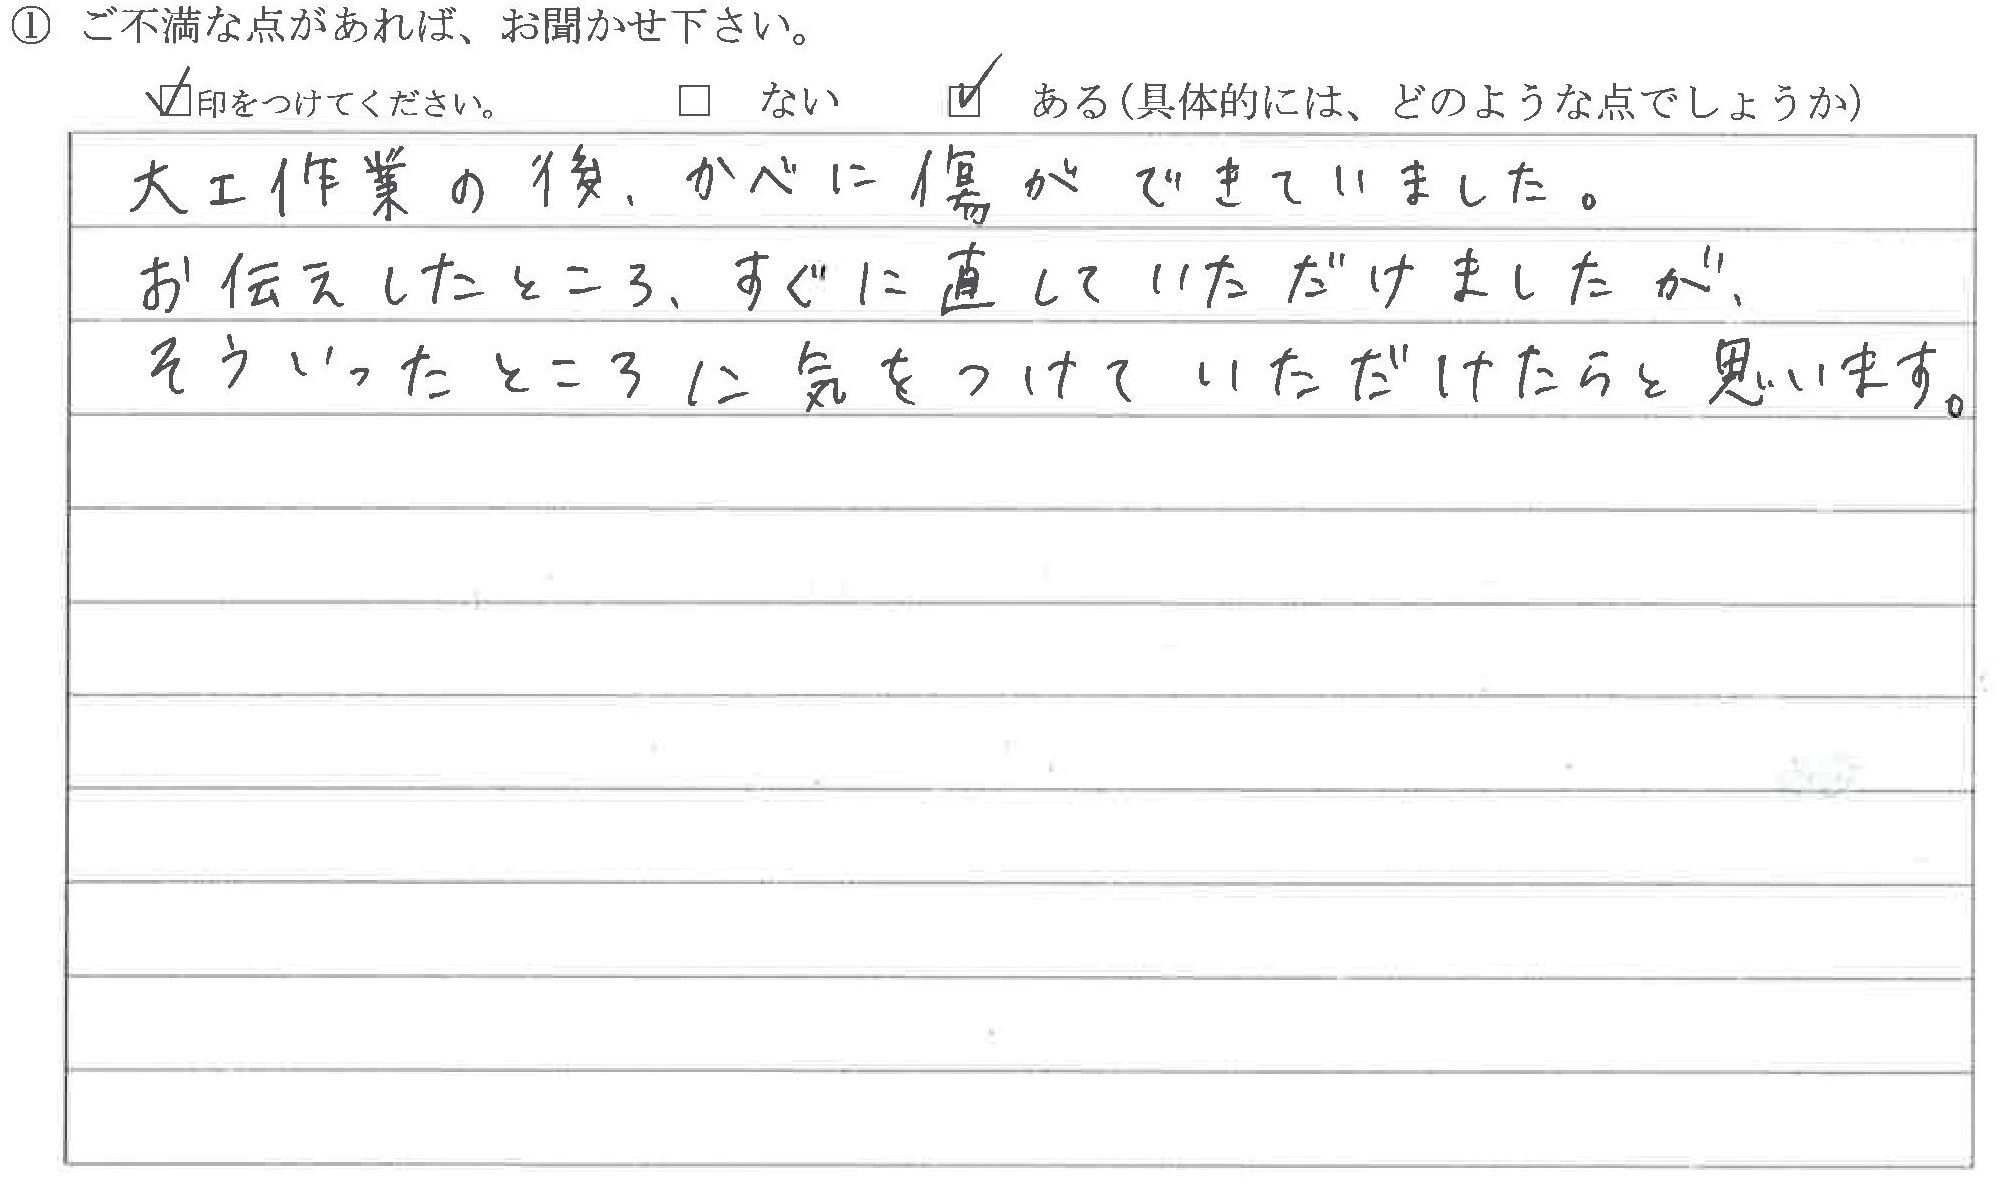 ① ご不満な点があれば、お聞かせ下さい。
☑印をつけてください。 □ ない ☑ ある(具体的には、どのような点でしょうか)
大工作業の後、かべに傷ができていました。
お伝えしたところ、すぐに直していただけましたが、
そういったところに気をつけていただけたらと思います。